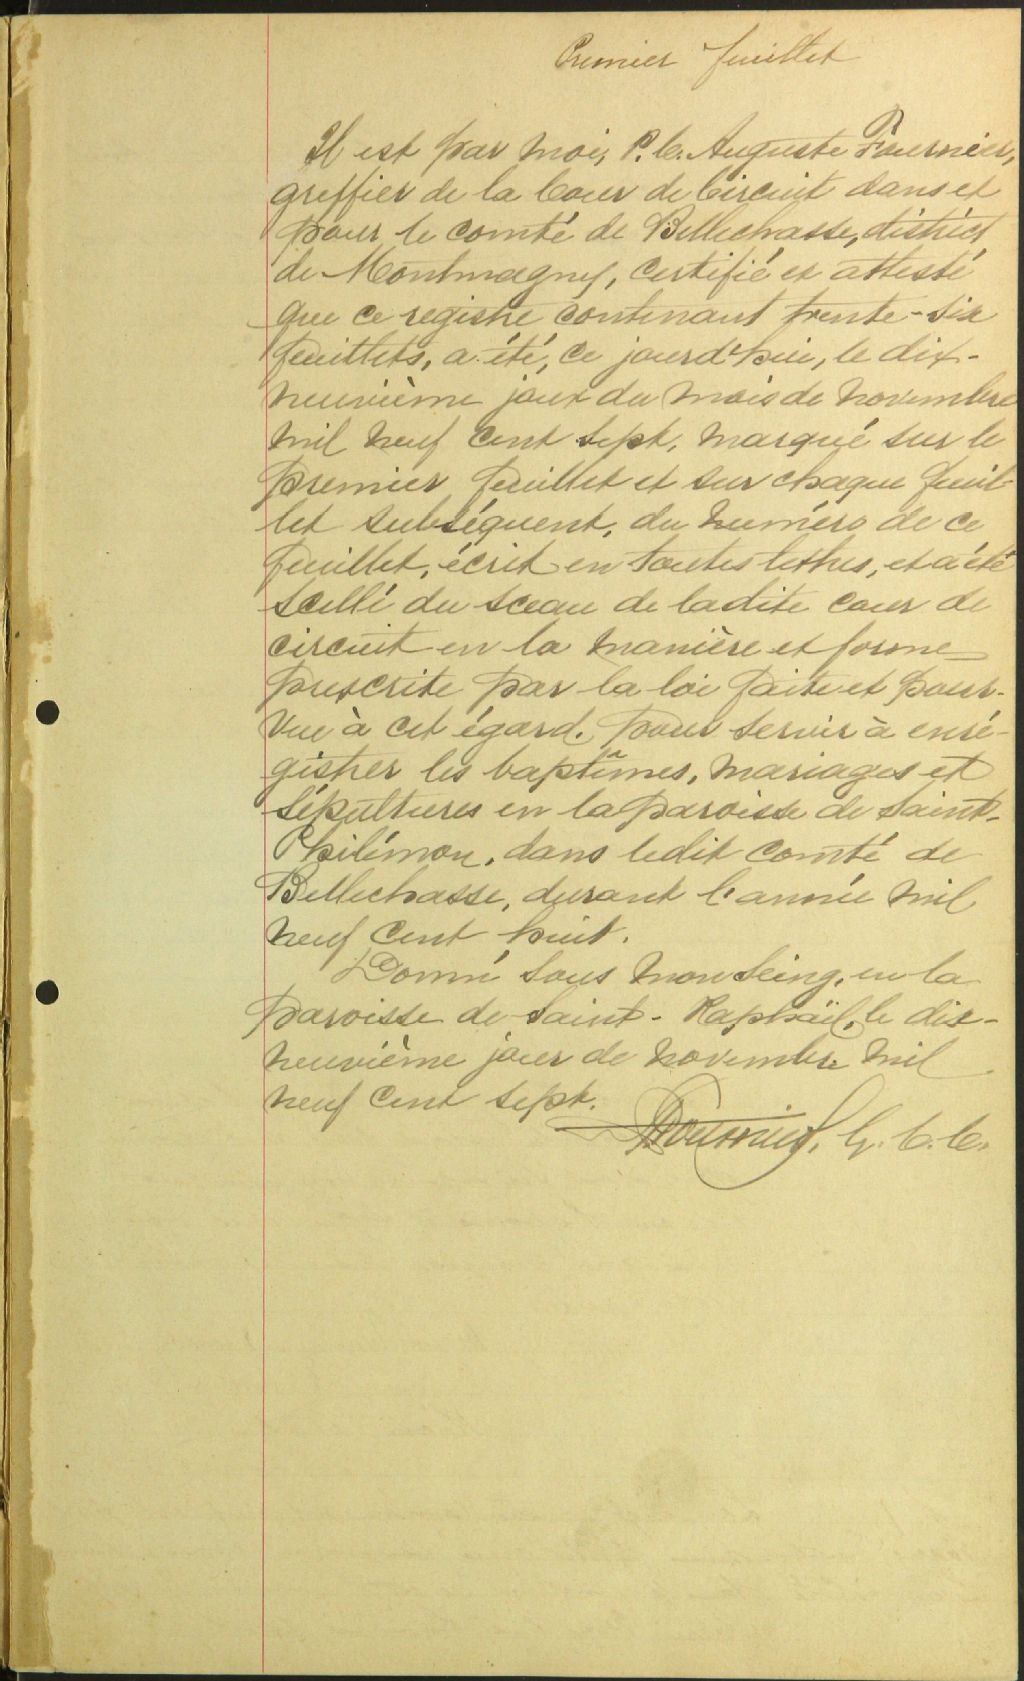 Premier feuillet
Il est par moi, P. C. Auguste Fournier,
greffier de la Cour de Circuit dans et
pour le comté de Bellechasse, district
de Montmagny, certifié et attesté
que ce registre contenant trente-six
feuillets, a été, ce jourd'hui, le dix-
neuvième jour du mois de novembre
mil neuf cent sept, marqué sur le
premier feuillet et sur chaque feuil-
let subséquent, du numéro de ce
feuillet, écrit en toutes lettres, et a été
scellé du sceau de ladite cour de
circuit en la manière et forme
prescrite par la loi faite et pour-
vue à cet égard, pour servir à enré-
gistrer les baptêmes, mariages et
sépultures en la paroisse de Saint-
Philémon, dans ledit comté de
Bellechasse, durant l'année mil
neuf cent huit.
Donné sous mon seing, en la
paroisse de Saint-Raphaël, le dix-
neuvième jour de novembre mil
neuf cent sept.
Fournier, G. C. C.